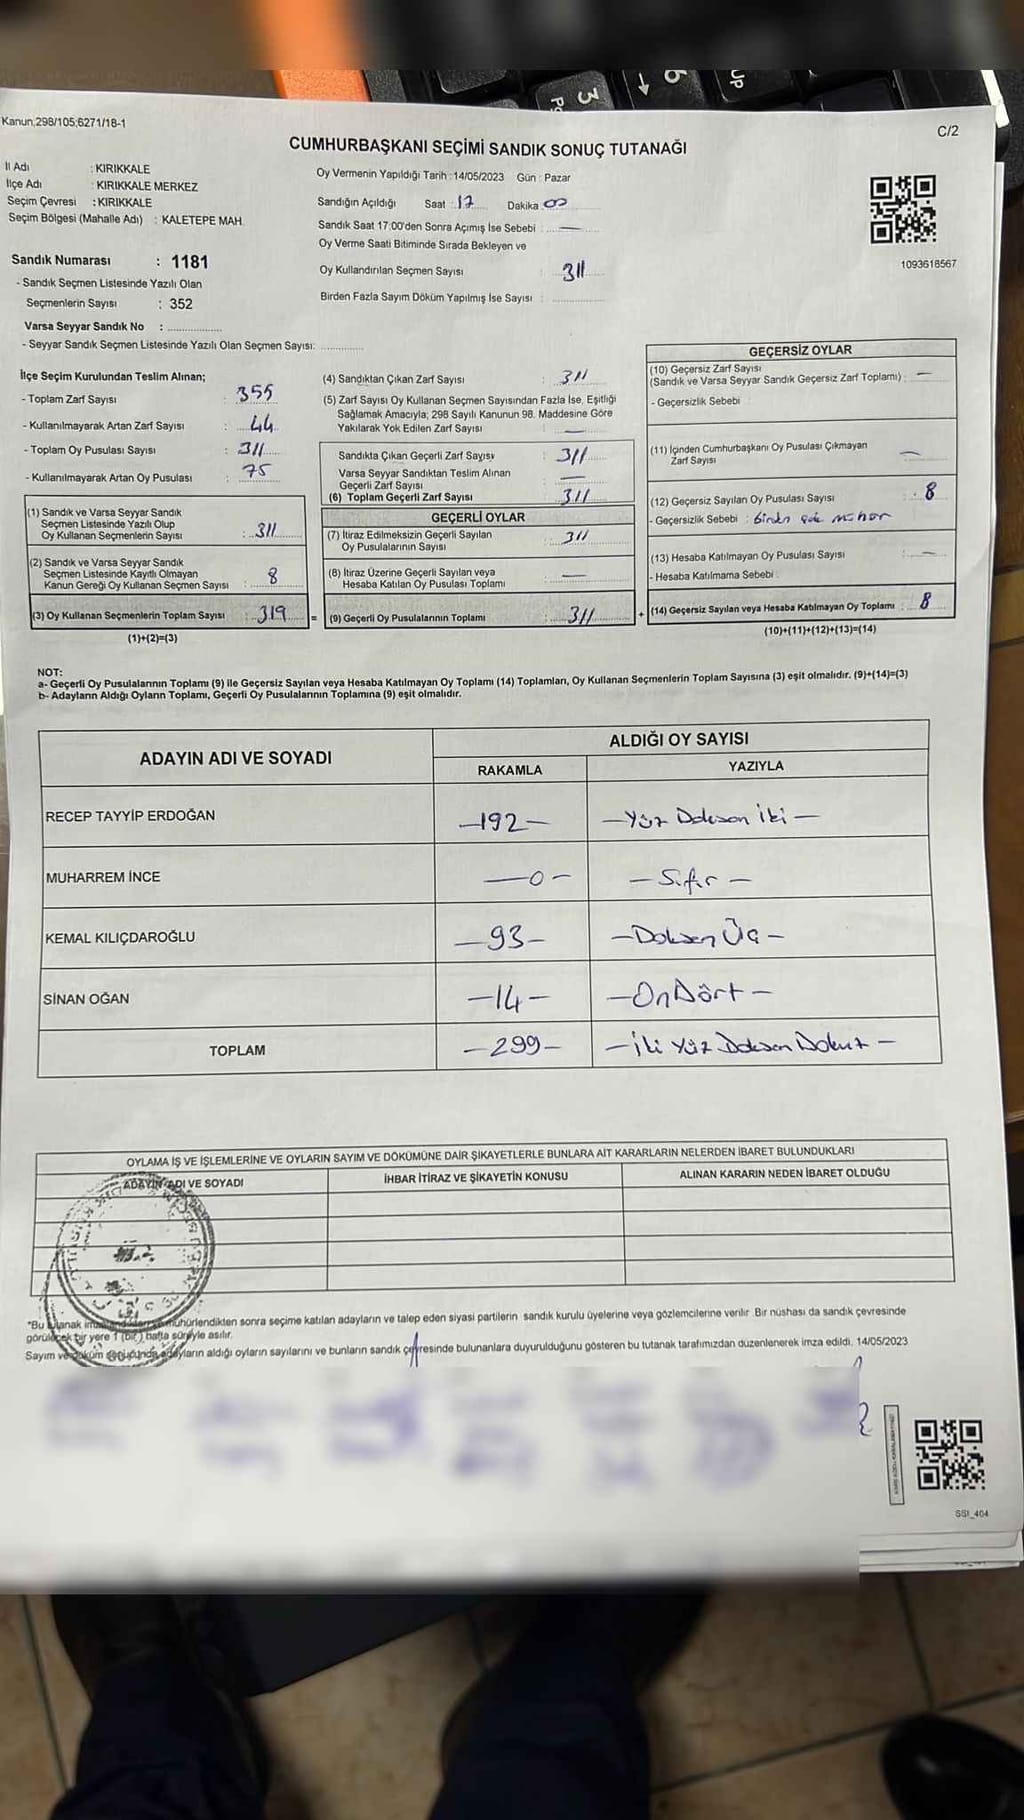 Kanun,298/105;6271/18-1
C/2
CUMHURBAŞKANI SEÇİMİ SANDIK SONUÇ TUTANAĞI
İl Adı : KIRIKKALE
İlçe Adı : KIRIKKALE MERKEZ
Seçim Çevresi : KIRIKKALE
Seçim Bölgesi (Mahalle Adı) : KALETEPE MAH.
Sandık Numarası : 1181
- Sandık Seçmen Listesinde Yazılı Olan
Seçmenlerin Sayısı : 352
Varsa Seyyar Sandık No :
- Seyyar Sandık Seçmen Listesinde Yazılı Olan Seçmen Sayısı:
Oy Vermenin Yapıldığı Tarih : 14/05/2023 Gün : Pazar
Sandığın Açıldığı Saat : 17 Dakika : 00
Sandık Saat 17:00'den Sonra Açımış İse Sebebi : —
Oy Verme Saati Bitiminde Sırada Bekleyen ve
Oy Kullandırılan Seçmen Sayısı : 311
Birden Fazla Sayım Döküm Yapılmış İse Sayısı :
1093618567
İlçe Seçim Kurulundan Teslim Alınan;
- Toplam Zarf Sayısı : 355
- Kullanılmayarak Artan Zarf Sayısı : 44
- Toplam Oy Pusulası Sayısı : 311
- Kullanılmayarak Artan Oy Pusulası : 75
(1) Sandık ve Varsa Seyyar Sandık
Seçmen Listesinde Yazılı Olup
Oy Kullanan Seçmenlerin Sayısı : 311
(2) Sandık ve Varsa Seyyar Sandık
Seçmen Listesinde Kayıtlı Olmayan
Kanun Gereği Oy Kullanan Seçmen Sayısı : 8
(3) Oy Kullanan Seçmenlerin Toplam Sayısı : 319 =
(1)+(2)=(3)
(4) Sandıktan Çıkan Zarf Sayısı : 311
(5) Zarf Sayısı Oy Kullanan Seçmen Sayısından Fazla İse, Eşitliği
Sağlamak Amacıyla; 298 Sayılı Kanunun 98. Maddesine Göre
Yakılarak Yok Edilen Zarf Sayısı : —
Sandıkta Çıkan Geçerli Zarf Sayısı : 311
Varsa Seyyar Sandıktan Teslim Alınan
Geçerli Zarf Sayısı : —
(6) Toplam Geçerli Zarf Sayısı : 311
GEÇERLİ OYLAR
(7) İtiraz Edilmeksizin Geçerli Sayılan
Oy Pusulalarının Sayısı : 311
(8) İtiraz Üzerine Geçerli Sayılan veya
Hesaba Katılan Oy Pusulası Toplamı : —
(9) Geçerli Oy Pusulalarının Toplamı : 311 +
GEÇERSİZ OYLAR
(10) Geçersiz Zarf Sayısı
(Sandık ve Varsa Seyyar Sandık Geçersiz Zarf Toplamı) : —
- Geçersizlik Sebebi :
(11) İçinden Cumhurbaşkanı Oy Pusulası Çıkmayan
Zarf Sayısı —
(12) Geçersiz Sayılan Oy Pusulası Sayısı : 8
- Geçersizlik Sebebi : birden çok mühür
(13) Hesaba Katılmayan Oy Pusulası Sayısı : —
- Hesaba Katılmama Sebebi :
(14) Geçersiz Sayılan veya Hesaba Katılmayan Oy Toplamı : 8
(10)+(11)+(12)+(13)=(14)
NOT:
a- Geçerli Oy Pusulalarının Toplamı (9) ile Geçersiz Sayılan veya Hesaba Katılmayan Oy Toplamı (14) Toplamları, Oy Kullanan Seçmenlerin Toplam Sayısına (3) eşit olmalıdır. (9)+(14)=(3)
b- Adayların Aldığı Oyların Toplamı, Geçerli Oy Pusulalarının Toplamına (9) eşit olmalıdır.
ADAYIN ADI VE SOYADI
ALDIĞI OY SAYISI
RAKAMLA YAZIYLA
RECEP TAYYİP ERDOĞAN —192— —Yüz Doksan İki—
MUHARREM İNCE —0— —Sıfır—
KEMAL KILIÇDAROĞLU —93— —Doksan Üç—
SİNAN OĞAN —14— —On Dört—
TOPLAM —299— —İki Yüz Doksan Dokuz—
OYLAMA İŞ VE İŞLEMLERİNE VE OYLARIN SAYIM VE DÖKÜMÜNE DAİR ŞİKAYETLERLE BUNLARA AİT KARARLARIN NELERDEN İBARET BULUNDUKLARI
ADAYIN ADI VE SOYADI İHBAR İTİRAZ VE ŞİKAYETİN KONUSU ALINAN KARARIN NEDEN İBARET OLDUĞU
*Bu tutanak mühürlendikten sonra seçime katılan adayların ve talep eden siyasi partilerin sandık kurulu üyelerine veya gözlemcilerine verilir. Bir nüshası da sandık çevresinde
görülecek bir yere 1 (bir) hafta süreyle asılır.
Sayım ve döküm adayların aldığı oyların sayılarını ve bunların sandık çevresinde bulunanlara duyurulduğunu gösteren bu tutanak tarafımızdan düzenlenerek imza edildi. 14/05/2023
SSI_404